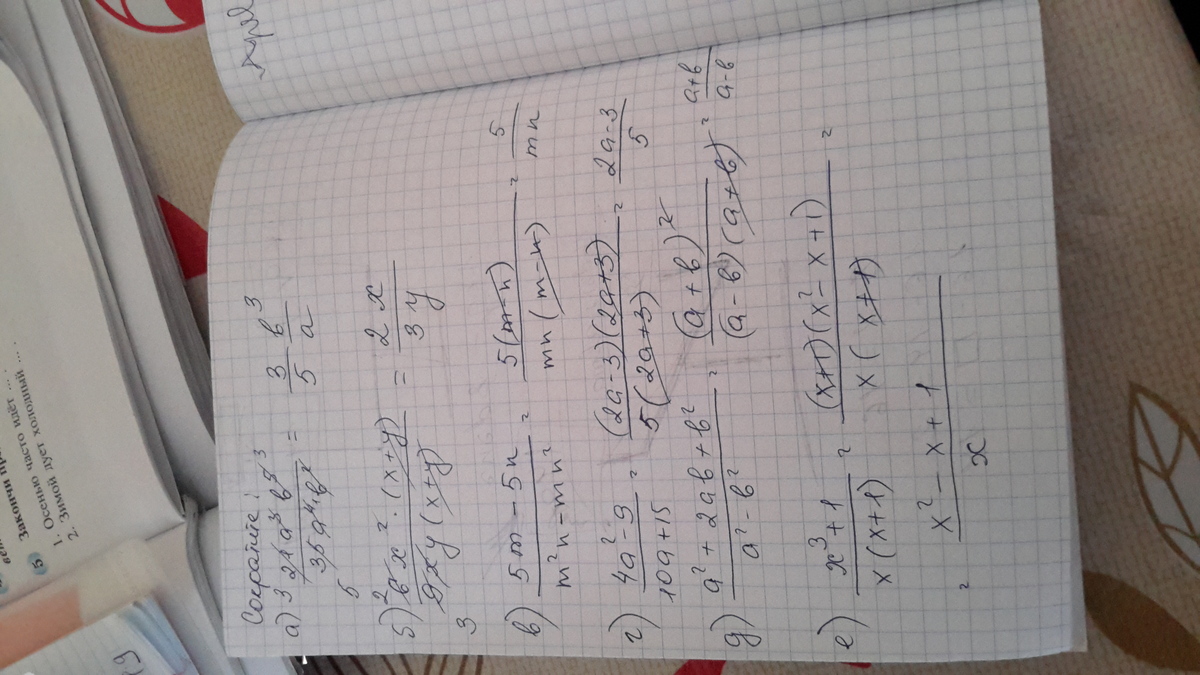 Сократите:
а) 3 21a³b⁵ 3 / 35a⁴b² 5 = 3/5 b³/a
б) 2 6x²·(x+y) / 9xy(x+y) 3 = 2x/3y
в) 5m-5n / m²n-mn² = 5(m-n) / mn(m-n) = 5/mn
г) 4a²-9 / 10a+15 = (2a-3)(2a+3) / 5(2a+3) = 2a-3/5
д) a²+2ab+b² / a²-b² = (a+b)² / (a-b)(a+b) = a+b/a-b
е) x³+1 / x(x+1) = (x+1)(x²-x+1) / x(x+1) =
= x²-x+1 / x
5 Закончи
1. Осенью часто идёт ... .
2. Зимой дует холодный ... .